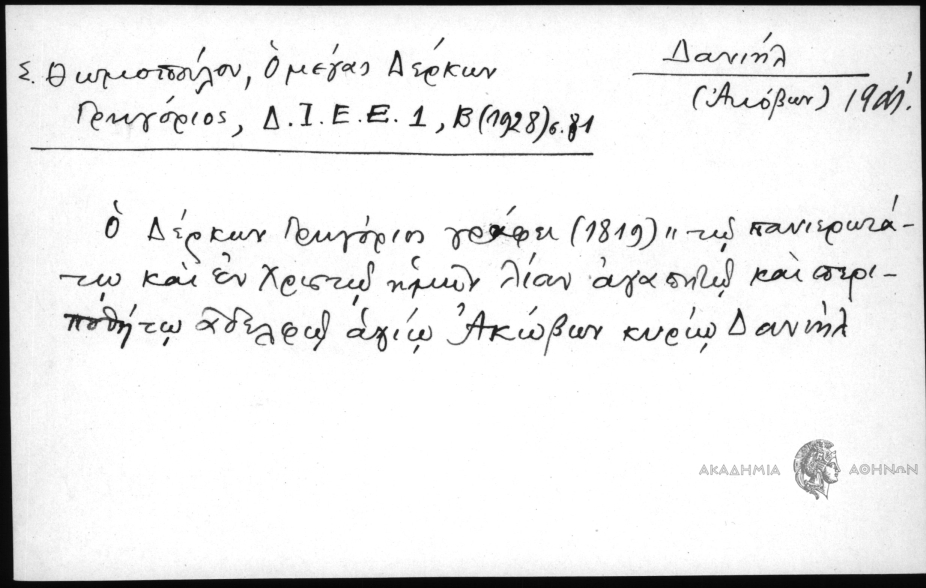 Σ. Θωμοπούλου, Ὁ μέγας Δέρκων
Γρηγόριος, Δ.Ι.Ε.Ε. 1, Β (1928) σ. 81
Δανιήλ
(Ἀκόβων) 19ος
Ὁ Δέρκων Γρηγόριος γράφει (1819) "τῷ πανιερωτά-
τῳ καὶ ἐν Χριστῷ ἡμῶν λίαν ἀγαπητῷ καὶ περι-
ποθήτῳ ἀδελφῷ ἁγίῳ Ἀκώβων κυρίῳ Δανιήλ
ΑΚΑΔΗΜΙΑ ΑΘΗΝΩΝ